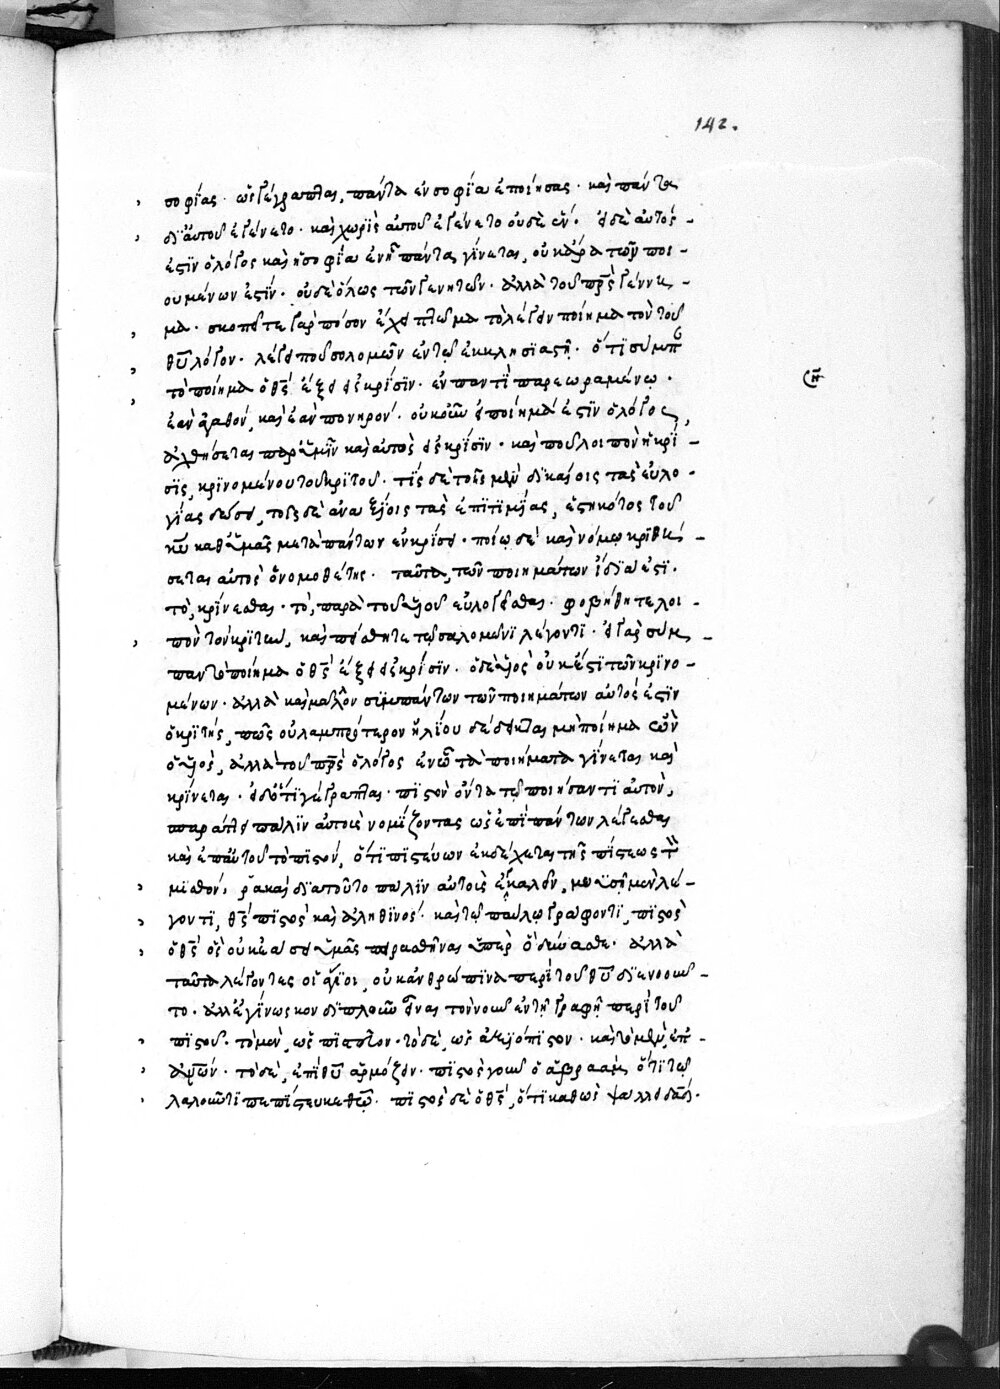 142.
σοφίας· ὡς γέγραπται, πάντα ἐν σοφία ἐποίησας· καὶ πάντα
δι' αὐτοῦ ἐγένετο· καὶ χωρὶς αὐτοῦ ἐγένετο οὐδὲ ἕν· εἰ δὲ αὐτός
ἐστιν ὁ λόγος καὶ ἡ σοφία ἐν ἧ πάντα γίνεται, οὐκ ἄρα τῶν ποι-
ουμένων ἐστίν· οὐδὲ ὅλως τῶν γενητῶν· ἀλλὰ τοῦ πρς γέννη-
μα· σκοπεῖτε γὰρ πόσον ἔχει πτῶμα τὸ λέγειν ποίημα τὸν τοῦ
θῦ λόγον· λέγει που σολομῶν ἐν τῷ ἐκκλησιαστῆ· ὅτι σύμπ
τὸ ποίημα ὁ θς ἄξει εἰς κρίσιν· ἐν παντὶ παρεωραμένω·
ἐὰν ἀγαθόν, καὶ ἐὰν πονηρόν· οὐκοῦν εἰ ποίημά ἐστιν ὁ λόγος,
ἀχθήσεται παρ' ὑμῖν καὶ αὐτὸς εἰς κρίσιν· καὶ ποῦ λοιπὸν ἡ κρί-
σις, κρινομένου τοῦ κριτοῦ· τίς δὲ τοῖς μὲν δικαίοις τὰς εὐλο-
γίας δώσει, τοῖς δὲ ἀναξίοις τὰς ἐπιτιμίας, ἑστηκότος τοῦ
κυ καθ' ὑμᾶς μετὰ πάντων ἐν κρίσει· ποίω δὲ καὶ νόμω κριθή-
σεται αὐτὸς ὁ νομοθέτης· ταῦτα τῶν ποιημάτων ἴδια ἐστι·
τὸ κρίνεσθαι· τὸ παρὰ τοῦ υἱοῦ εὐλογεῖσθαι· φοβήθητε λοι-
πὸν τὸν κριτὴν, καὶ πείσθητε τῷ σαλομῶνι λέγοντι· εἰ γὰρ σύμ-
παν τὸ ποίημα ὁ θς ἄξει εἰς κρίσιν· ὁ δὲ υἱὸς οὐκ ἔστι τῶν κρινο-
μένων· ἀλλὰ καὶ μᾶλλον συμπάντων τῶν ποιημάτων αὐτός ἐστιν
ὁ κριτής, πῶς οὐ λαμπρότερον ἡλίου δέδεικται μὴ ποίημα ὢν
ὁ υἱὸς, ἀλλὰ τοῦ πρς ὁ λόγος ἐν ὧ τὰ ποιήματα γίνεται καὶ
κρίνεται· εἰ δὲ ὅτι γέγραπται· πιστὸν ὄντα τῷ ποιήσαντι αὐτὸν,
ταράττει πάλιν αὐτοὺς νομίζοντας ὡς ἐπὶ πάντων λέγεσθαι
καὶ ἐπ' αὐτοῦ τὸ πιστόν, ὅτι πιστεύων ἐκδέχεται τῆς πίστεως τὸν
μισθόν, ὥρα καὶ διὰ τοῦτο πάλιν αὐτοὺς ἐγκαλεῖν, μωυσῆ μὲν λέ-
γοντι, θς πιστὸς καὶ ἀληθινός· καὶ τῷ παύλω γράφοντι, πιστὸς
ὁ θς ὃς οὐκ ἐάσει ὑμᾶς πειρασθῆναι ὑπὲρ ὃ δύνασθε· ἀλλὰ
ταῦτα λέγοντες οἱ ἅγιοι, οὐκ ἀνθρώπινα περὶ τοῦ θῦ διενοοῦν-
το· ἀλλ' ἐγίνωσκον διπλοῦν εἶναι τὸν νοῦν ἐν τῆ γραφῆ περὶ τοῦ
πιστοῦ· τὸ μὲν, ὡς πιστεῦον· τὸ δὲ, ὡς ἀξιόπιστον· καὶ τὸ μὲν, ἐπ'
ἀνῶν· τὸ δὲ, ἐπὶ θῦ ἁρμόζον· πιστὸς γοῦν ὁ ἀβραὰμ ὅτι τῷ
λαλοῦντι πεπίστευκε θῶ· πιστὸς δὲ ὁ θς, ὅτι καθὼς ψάλλει δαδ·